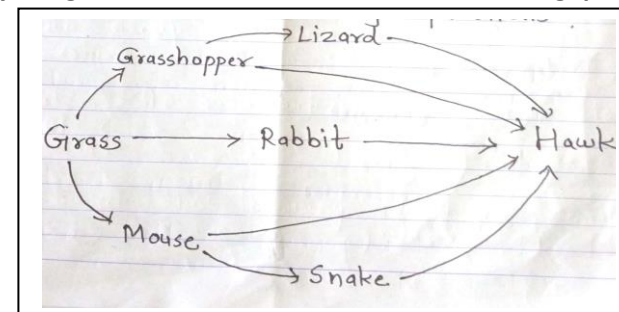 Lizard
Grasshopper
Grass Rabbit Hawk
Mouse
Snake